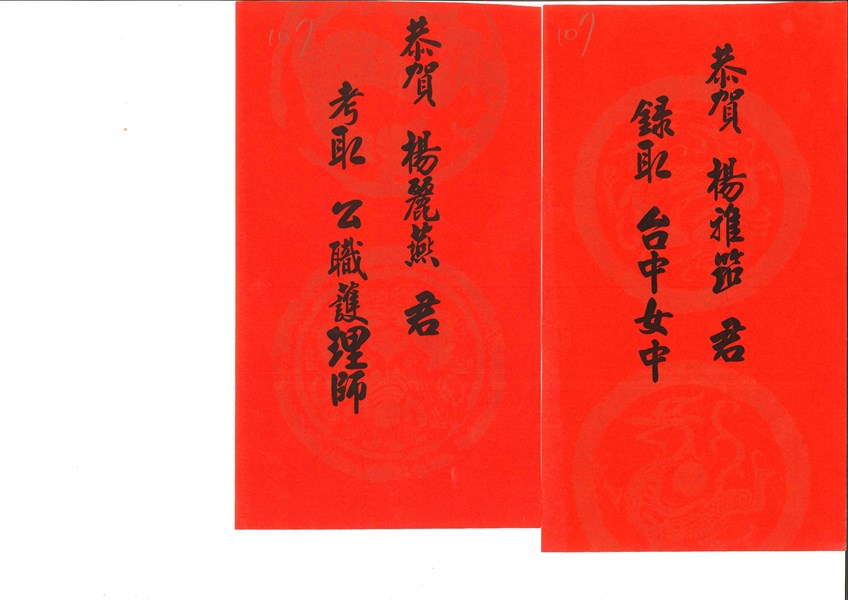 107
恭賀 楊雅筑 君
錄取 台中女中
107
恭賀 楊麗燕 君
考取 公職護理師